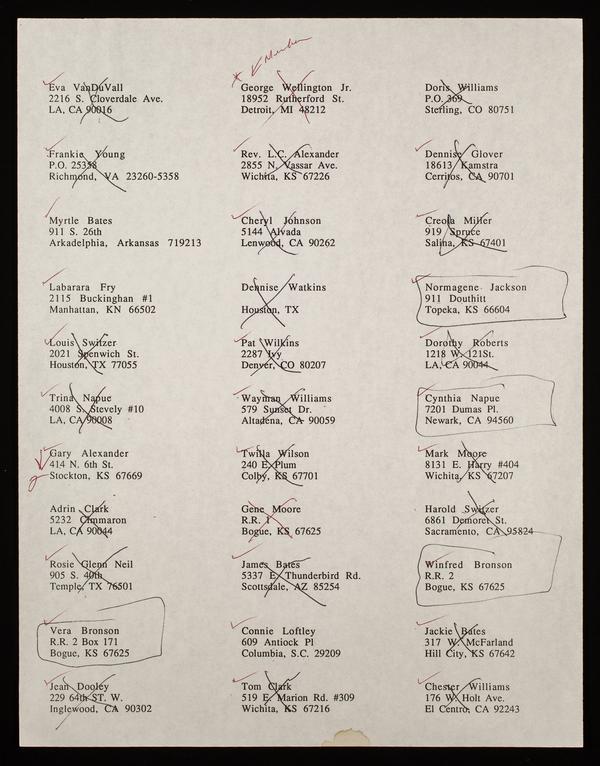 Member
Eva VanDuVall
2216 S. Cloverdale Ave.
LA, CA 90016
George Wellington Jr.
18952 Rutherford St.
Detroit, MI 48212
Doris Williams
P.O. 369
Sterling, CO 80751
Frankie Young
P.O. 25358
Richmond, VA 23260-5358
Rev. L.C. Alexander
2855 N. Vassar Ave.
Wichita, KS 67226
Dennise Glover
18613 Kamstra
Cerritos, CA 90701
Myrtle Bates
911 S. 26th
Arkadelphia, Arkansas 719213
Cheryl Johnson
5144 Alvada
Lenwood, CA 90262
Creola Miller
919 Spruce
Salina, KS 67401
Labarara Fry
2115 Buckinghan #1
Manhattan, KN 66502
Dennise Watkins
Houston, TX
Normagene Jackson
911 Douthitt
Topeka, KS 66604
Louis Switzer
2021 Spenwich St.
Houston, TX 77055
Pat Wilkins
2287 Ivy
Denver, CO 80207
Dorothy Roberts
1218 W. 121St.
LA, CA 90044
Trina Napue
4008 S. Stevely #10
LA, CA 90008
Wayman Williams
579 Sunset Dr.
Altadena, CA 90059
Cynthia Napue
7201 Dumas Pl.
Newark, CA 94560
Gary Alexander
414 N. 6th St.
Stockton, KS 67669
Twilla Wilson
240 E. Plum
Colby, KS 67701
Mark Moore
8131 E. Harry #404
Wichita, KS 67207
Adrin Clark
5232 Cimmaron
LA, CA 90044
Gene Moore
R.R. 1
Bogue, KS 67625
Harold Switzer
6861 Demoret St.
Sacramento, CA 95824
Rosie Glenn Neil
905 S. 40th
Temple, TX 76501
James Bates
5337 E. Thunderbird Rd.
Scottsdale, AZ 85254
Winfred Bronson
R.R. 2
Bogue, KS 67625
Vera Bronson
R.R. 2 Box 171
Bogue, KS 67625
Connie Loftley
609 Antiock Pl
Columbia, S.C. 29209
Jackie Bates
317 W. McFarland
Hill City, KS 67642
Jean Dooley
229 64th ST. W.
Inglewood, CA 90302
Tom Clark
519 E. Marion Rd. #309
Wichita, KS 67216
Chester Williams
176 W. Holt Ave.
El Centro, CA 92243